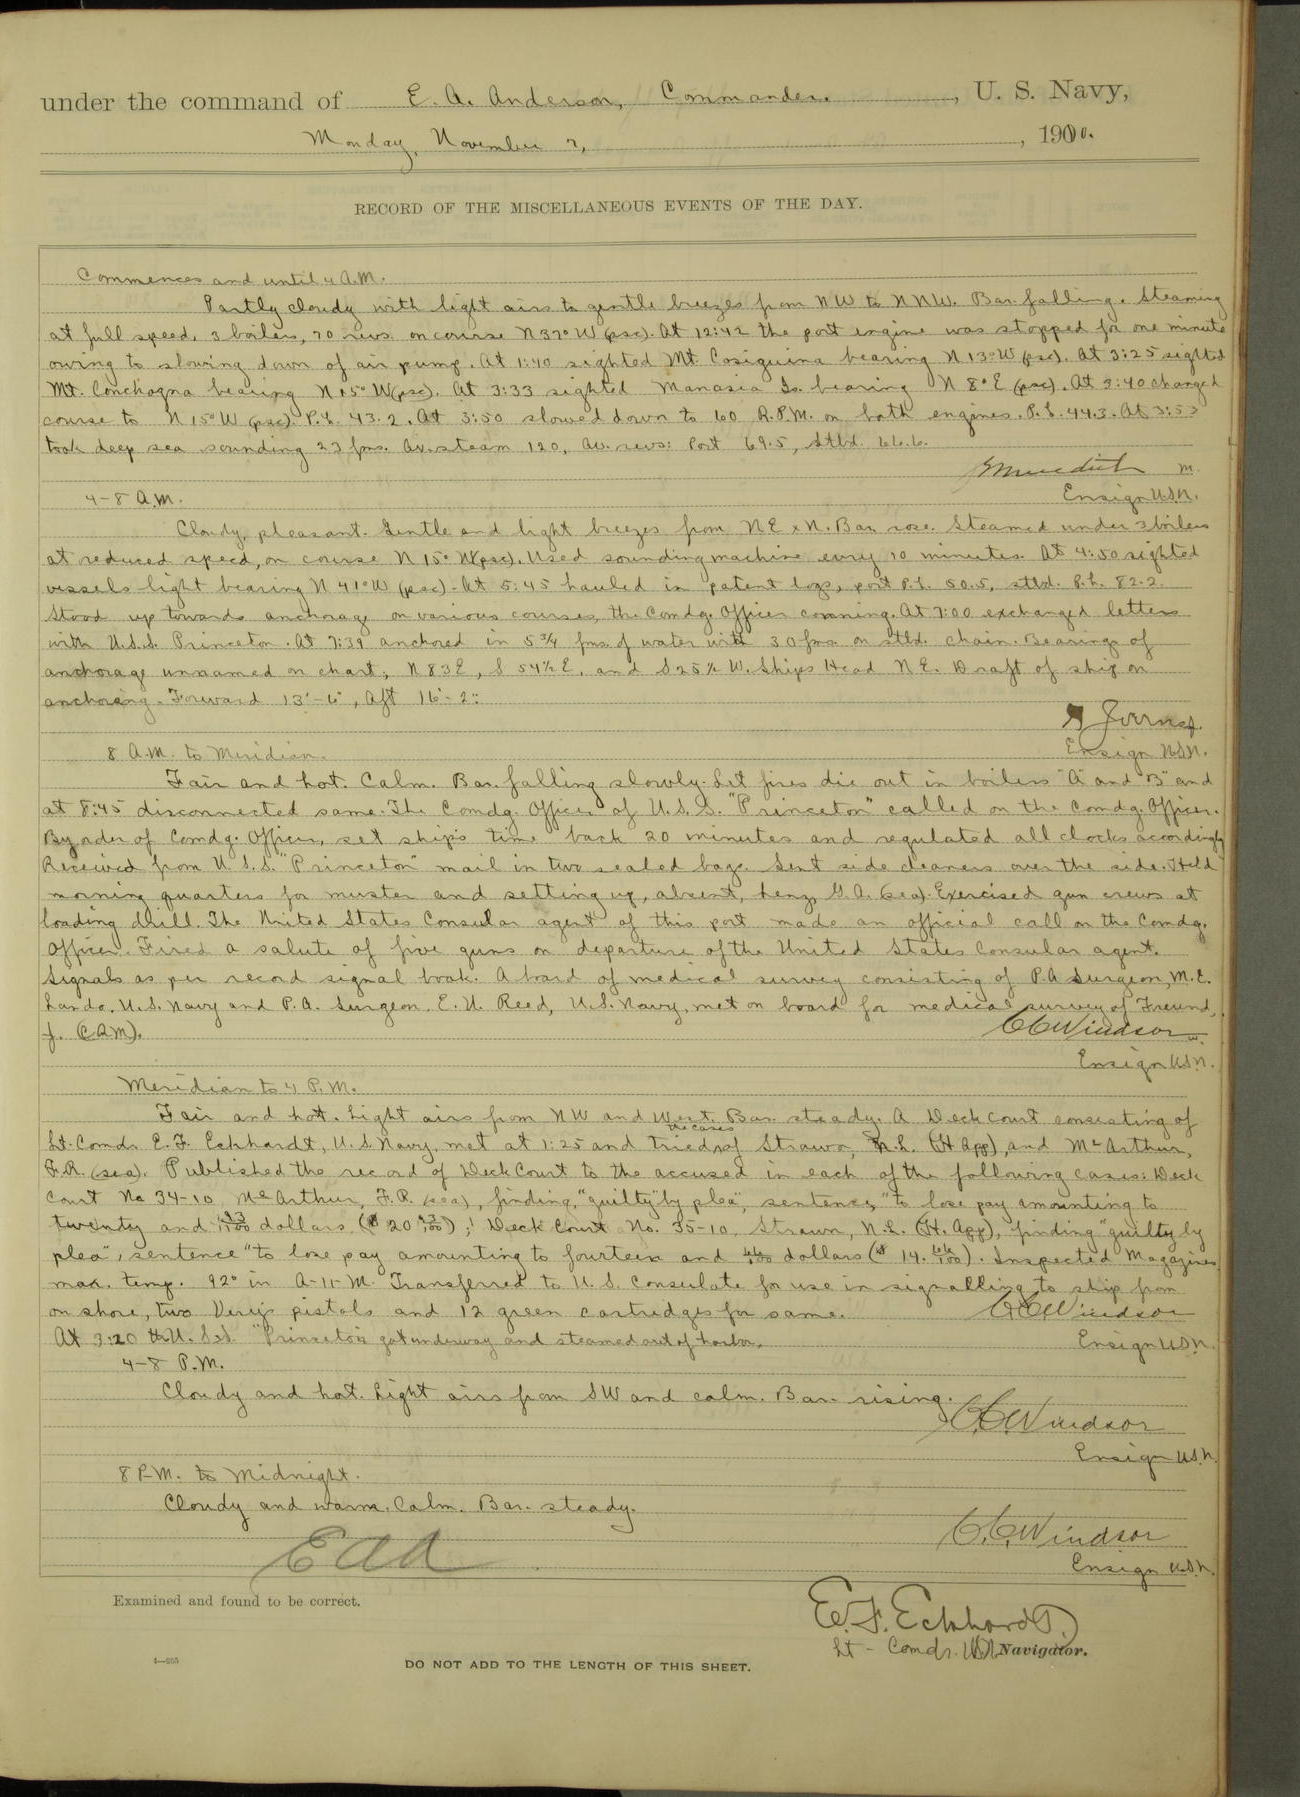 under the command of E. A. Anderson, Commander, U. S. Navy,
Monday, November 7, 1910.
RECORD OF THE MISCELLANEOUS EVENTS OF THE DAY.
Commences and until 4 A.M.
Partly cloudy with light airs to gentle breezes from NW to NNW. Bar. falling. Steaming
at full speed, 3 boilers, 70 revs. on course N 37° W (psc). At 12:42 the port engine was stopped for one minute
owing to slowing down of air pump. At 1:40 sighted Mt. Cosiguina bearing N 13° W (psc). At 3:25 sighted
Mt. Conchagna bearing N 15° W (psc). At 3:33 sighted Manasia Is. bearing N 8° E (psc). At 3:40 changed
course to N 15° W (psc). P.L. 43.2. At 3:50 slowed down to 60 R.P.M. on both engines. P.L. 44.3. At 3:53
took deep sea sounding 23 fms. Av. steam 120, Av. revs: Port 69.5, Stbd. 66.6.
Meredith
Ensign U.S.N.
4-8 A.M.
Cloudy, pleasant. Gentle and light breezes from NE x N. Bar. rose. Steamed under 3 boilers
at reduced speed, on course N 15° W (psc). Used sounding machine every 10 minutes. At 4:50 sighted
vessels light bearing N 41° W (psc). At 5:45 hauled in patent logs, port P.L. 50.5, stbd. P.L. 82.2.
Stood up towards anchorage on various courses, the Comdg. Officer conning. At 7:00 exchanged letters
with U.S.S. Princeton. At 7:39 anchored in 5 3/4 fms. of water with 30 fms. on stbd. chain. Bearings of
anchorage unnamed on chart; N 83 E, S 54½ E, and S 25½ W. Ships Head NE. Draft of ship on
anchoring. Forward 13'-6", Aft 16'-2".
Ensign U.S.N.
8 A.M. to Meridian.
Fair and hot. Calm. Bar. falling slowly. Let fires die out in boilers "A" and "B" and
at 8:45 disconnected same. The Comdg. Officer of U.S.S. "Princeton" called on the Comdg. Officer.
By order of Comdg. Officer, set ship's time back 20 minutes and regulated all clocks accordingly
Received from U.S.S. "Princeton" mail in two sealed bags. Sent side cleaners over the side. Held
morning quarters for muster and setting up, absent, Lenz, G.A. (sea). Exercised gun crews at
loading drill. The United States Consular agent of this port made an official call on the Comdg.
Officer. Fired a salute of five guns on departure of the United States Consular agent.
Signals as per record signal book. A board of medical survey consisting of P.A. Surgeon, M.E.
Lando, U.S. Navy and P.A. Surgeon, E.U. Reed, U.S. Navy, met on board for medical survey of Freund,
J. (CPM).
C C Windsor
Ensign U.S.N.
Meridian to 4 P.M.
Fair and hot. Light airs from NW and West. Bar. steady. A Deck Court consisting of
Lt. Comdr. E.F. Eckhardt, U.S. Navy, met at 1:25 and tried the cases of Strawn, N.L. (H App), and McArthur,
F.R. (sea). Published the record of Deck Court to the accused in each of the following cases: Deck
Court No 34-10, McArthur, F.R. (sea), finding, "guilty by plea", sentence, "to lose pay amounting to
twenty and 53/100 dollars ($ 20 53/100); Deck Court No. 35-10, Strawn, N.L. (H. App), finding "guilty by
plea", sentence "to lose pay amounting to fourteen and 66/100 dollars ($ 14. 66/100). Inspected Magazines
max. temp. 92° in A-11-M. Transferred to U.S. Consulate for use in signalling to ship from
on shore, two Very's pistols and 12 green cartridges for same.
C C Windsor
At 3:20 the U.S.S. "Princeton got underway and steamed out of harbor.
Ensign U.S.N.
4-8 P.M.
Cloudy and hot. Light airs from SW and calm. Bar. rising.
C. C. Windsor
Ensign U.S.N.
8 P.M. to Midnight.
Cloudy and warm. Calm. Bar. steady.
C. C. Windsor
EAA
Ensign U.S.N.
Examined and found to be correct.
E. F. Eckhardt,
Lt-Comdr. USN Navigator.
DO NOT ADD TO THE LENGTH OF THIS SHEET.